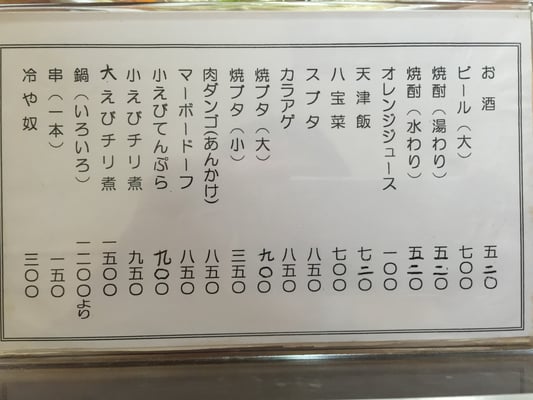 お酒 五二〇
ビール(大) 七〇〇
焼酎(湯わり) 五二〇
焼酎(水わり) 五二〇
オレンジジュース 一〇〇
天津飯 七二〇
八宝菜 七〇〇
スブタ 八五〇
カラアゲ 八五〇
焼ブタ(大) 九〇〇
焼ブタ(小) 三五〇
肉ダンゴ(あんかけ) 八五〇
マーボードーフ 八五〇
小えびてんぷら 九〇〇
小えびチリ煮 九五〇
大えびチリ煮 一五〇〇
鍋(いろいろ) 一二〇〇より
串(一本) 一五〇
冷や奴 三〇〇